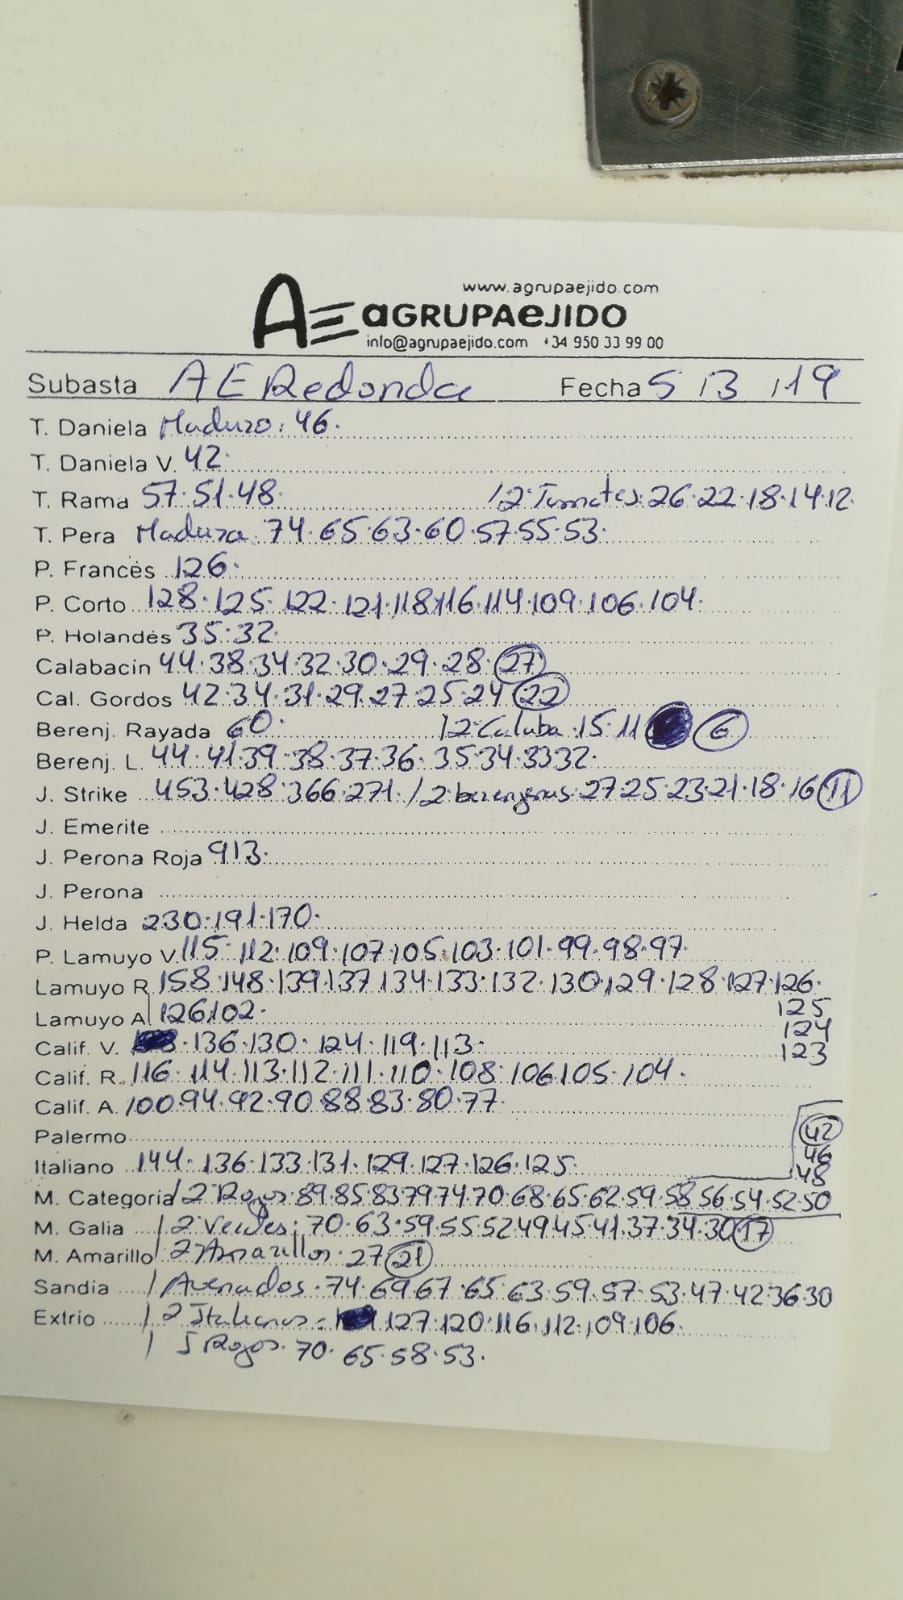 www.agrupaejido.com
AE aGRUPAeJIDO
info@agrupaejido.com +34 950 33 99 00
Subasta AE Redonda Fecha 5 / 3 / 19
T. Daniela Maduro: 46.
T. Daniela V. 42.
T. Rama 57.51.48. / 2ª Tomates. 26.22.18.14.12
T. Pera Madura. 74.65.63.60.57.55.53.
P. Francés 126.
P. Corto 128.125.122.121.118.116.114.109.106.104.
P. Holandés 35.32.
Calabacín 44.38.34.32.30.29.28.27
Cal. Gordos 42.34.31.29.27.25.24 22
Berenj. Rayada 60. / 2ª Calaba. 15.11 6
Berenj. L. 44.41.39.38.37.36.35.34.33 32.
J. Strike 453.428.366.271. / 2 berenjenas. 27.25.23.21.18.16 11
J. Emerite
J. Perona Roja 913.
J. Perona
J. Helda 230.191.170.
P. Lamuyo V. 115.112.109.107.105.103.101.99.98.97.
Lamuyo R. 158.148.139.137.134.133.132.130.129.128.127.126.
125
Lamuyo A. 126.102.
124
Calif. V. 136.130.124.119.113.
123
Calif. R. 116.114.113.112.111.110.108.106.105.104.
Calif. A. 100.94.92.90.88.83.80.77.
Palermo
42
Italiano 144.136.133.131.129.127.126.125.
46
48
M. Categoria / 2 Rojos. 89.85.83.79.74.70.68.65.62.59.58.56.54.52.50
M. Galia / 2 Verdes: 70.63.59.55.52.49.45.41.37.34.30 17
M. Amarillo / 2 Amarillos. 27 21
Sandia / Asurados. 74.69.67.65.63.59.57.53.47.42.36.30
Extrio / 2 Italianos = 127.120.116.112.109.106.
/ 5 Rojos. 70.65.58.53.